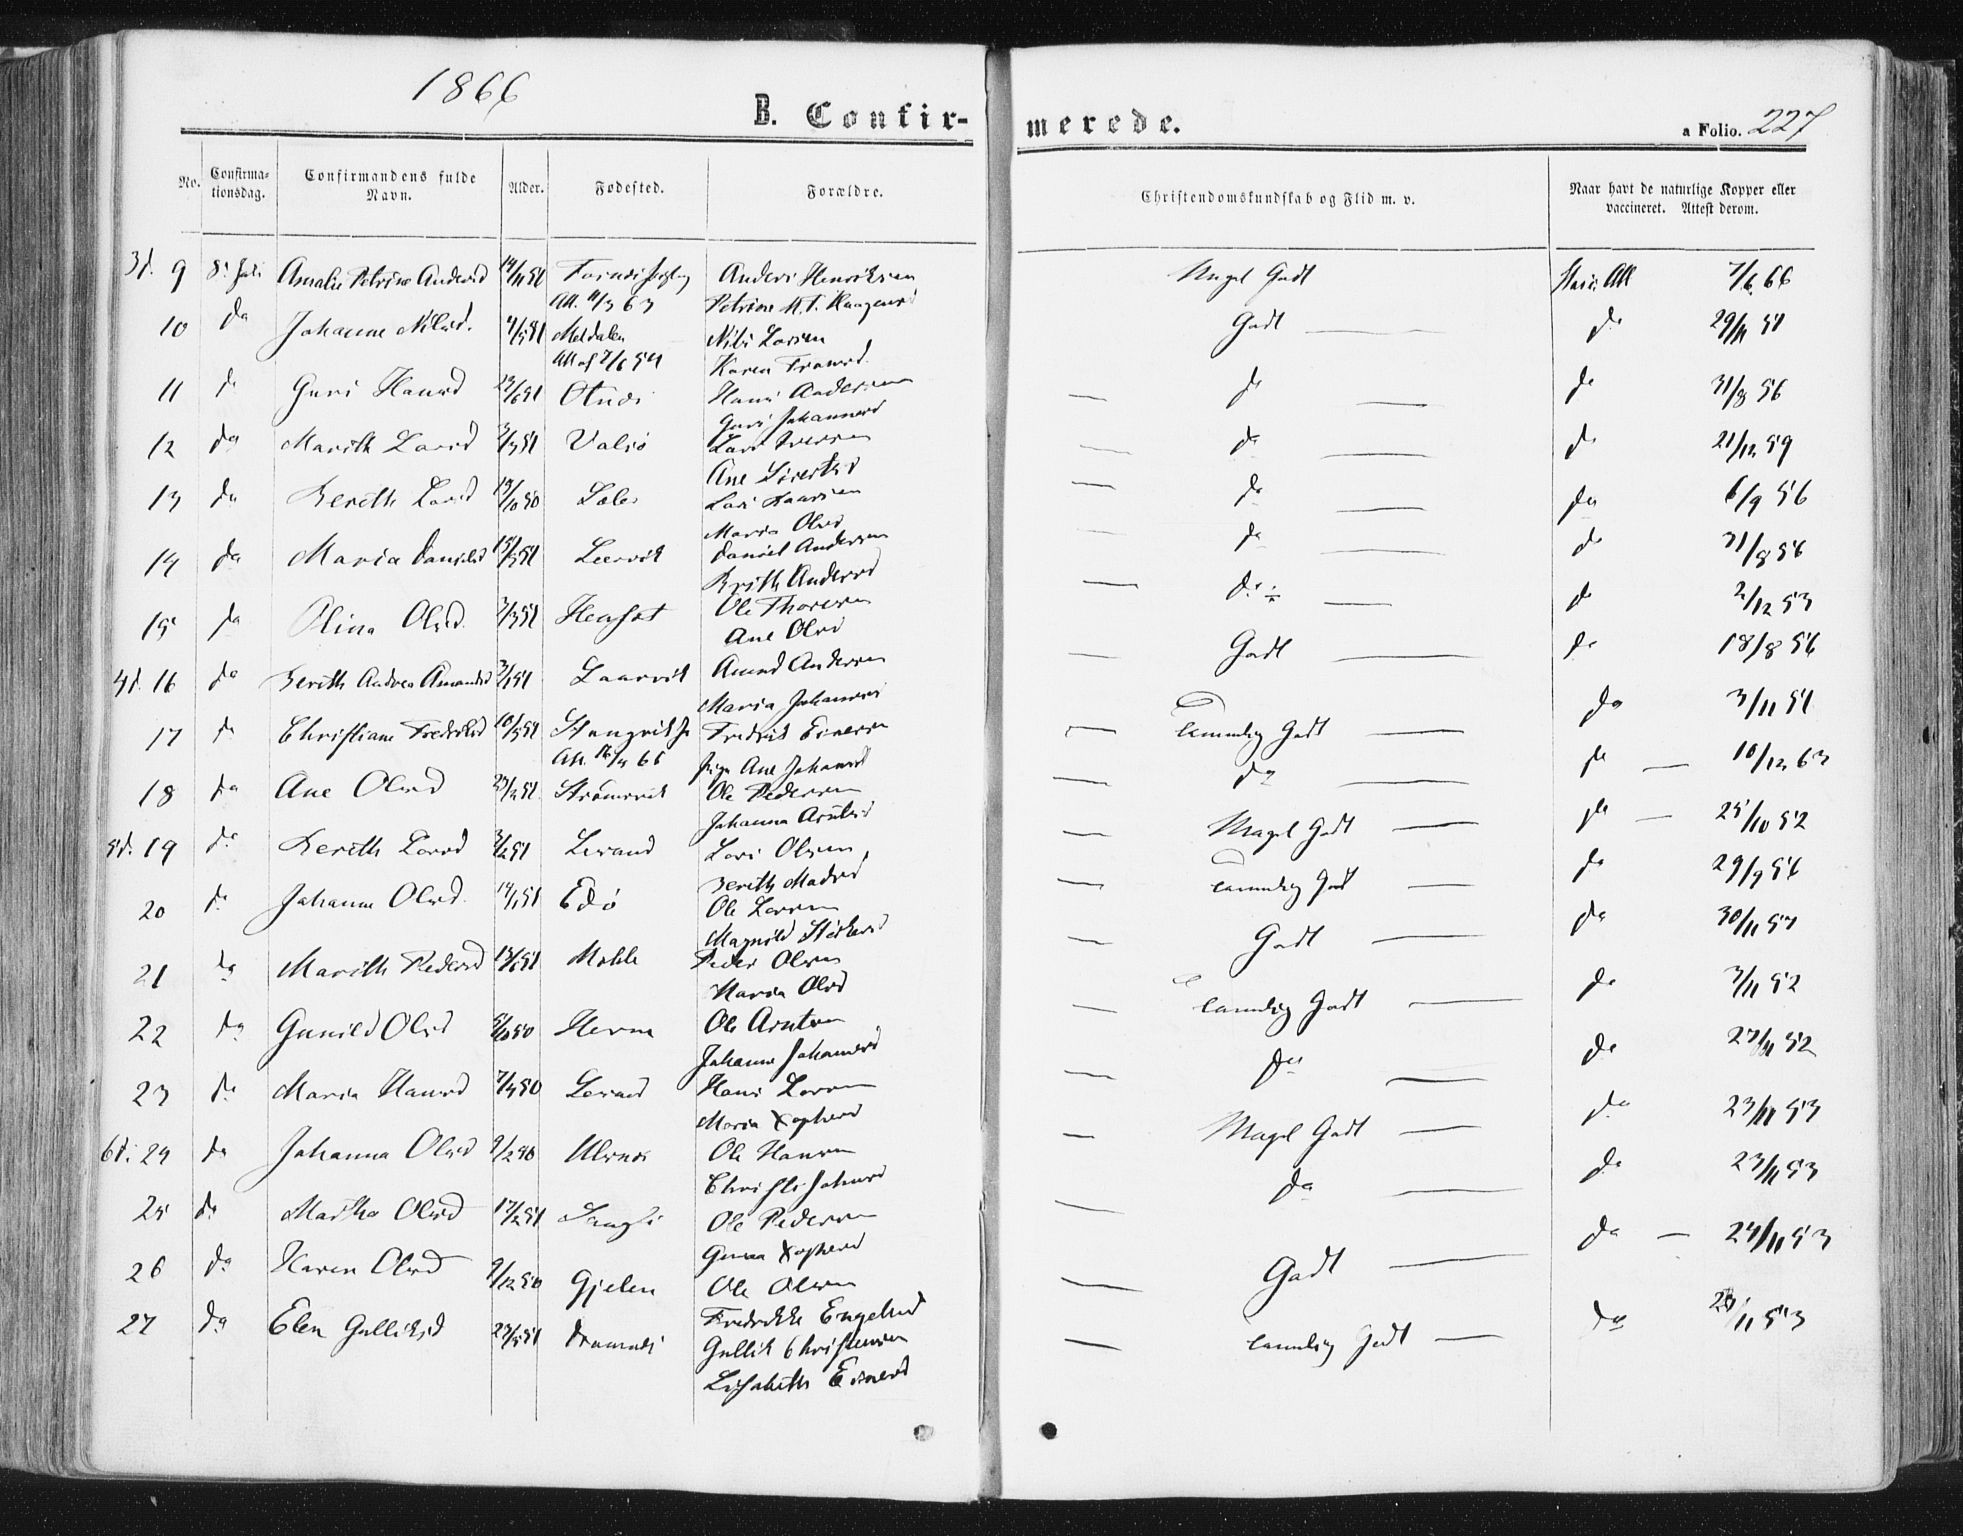 1866
B. Confirmerede.
a Folio. 227
No. Confirmationsdag. Confirmandens fulde Navn. Alder. Fødested. Forældre. Christendomskundskab og Flid m. v. Naar havt de naturlige Kopper eller vaccineret. Attest derom.
3d. 9 8d Juli Amalie Petrine Andersd 14/11 51 Anders Henriksen Meget Godt Att 7/6 66
Att. 11/3 63 Petrine M. T.
10 do Johanne Nilsd. 4/5 51 Meldalen Nils Larsen Godt do 29/11 51
Att af 7/6 54 Karen
11 do Guri Hansd 24/6 51 Otnæs Hans Andersen do do 31/8 56
Guri Johannesd
12 do Marith Larsd 3/3 51 Valsø Lars Iversen do do 21/12 59
Ane
13 do Berith Larsd 50 Lars Larsen do do 6/9 56
Maria Olsd
14 do Maria Danielsd 15/3 51 Leervik Daniel Andersen do do 31/8 56
Brith Andersd
15 do Olina Olsd. 3/3 51 Henset Ole Thoresen do ÷ do 2/12 53
Ane Olsd
4d. 16 do Berith Andrea Amundsd 3/1 51 Laarvik Amund Andersen Godt do 18/8 56
Maria Johannesd
17 do Christiane Fredriksd 10/5 51 Stangvik Fredrik Einersen Temmelig Godt do 3/11 51
Att. 66 pige Ane Johannesd
18 do Ane Olsd 51 Strømsvik Ole Pedersen do do — 10/12 63
Johanna Arntsd
5d. 19 do Berith Larsd 3/2 51 Lesund Lars Olsen Meget Godt do — 25/10 52
Berith Madsd
20 do Johanne Olsd. 14/1 51 Edø Ole Larsen Temmelig Godt do 29/9 54
Magnild
21 do Marith Pedersd 51 Mohle Peder Olsen Godt do 30/11 57
Maria Olsd
22 do Gunild Olsd 50 Ole Arntsen Temmelig Godt do 3/11 52
Johanne Johannesd
23 do Maria Hansd 7/4 50 Lesund Hans Larsen do do 27/11 52
Maria Xophersd
6d. 24 do Johanna Olsd 9/2 50 Ulsnæs Ole Hansen Meget Godt do 23/11 53
25 do Martha Olsd 17/2 51 Ole Pedersen do do 23/11 53
Xophersd
26 do Karen Olsd 9/12 50 Gjelen Ole Olsen Godt do — 24/11 53
Fredrikke Engelsd
27 do Elen Gulliksd 23/5 51 Gullik Christensen Temmelig Godt do /11 53
Lisabeth Einersd